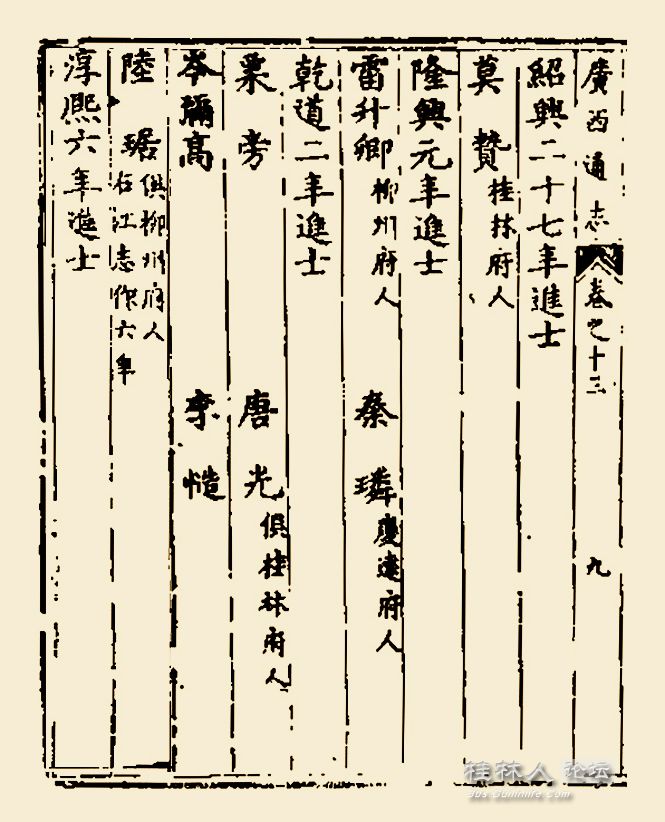 廣西通志 卷之十三 九
紹興二十七年進士
莫贊 桂林府人
隆興元年進士
雷升卿 柳州府人 秦璘 慶遠府人
乾道二年進士
栗旁 唐光 俱桂林府人
岑彌高 李慥
陸琚 俱柳州府人 右江志作六年
淳熙六年進士
桂林人论坛